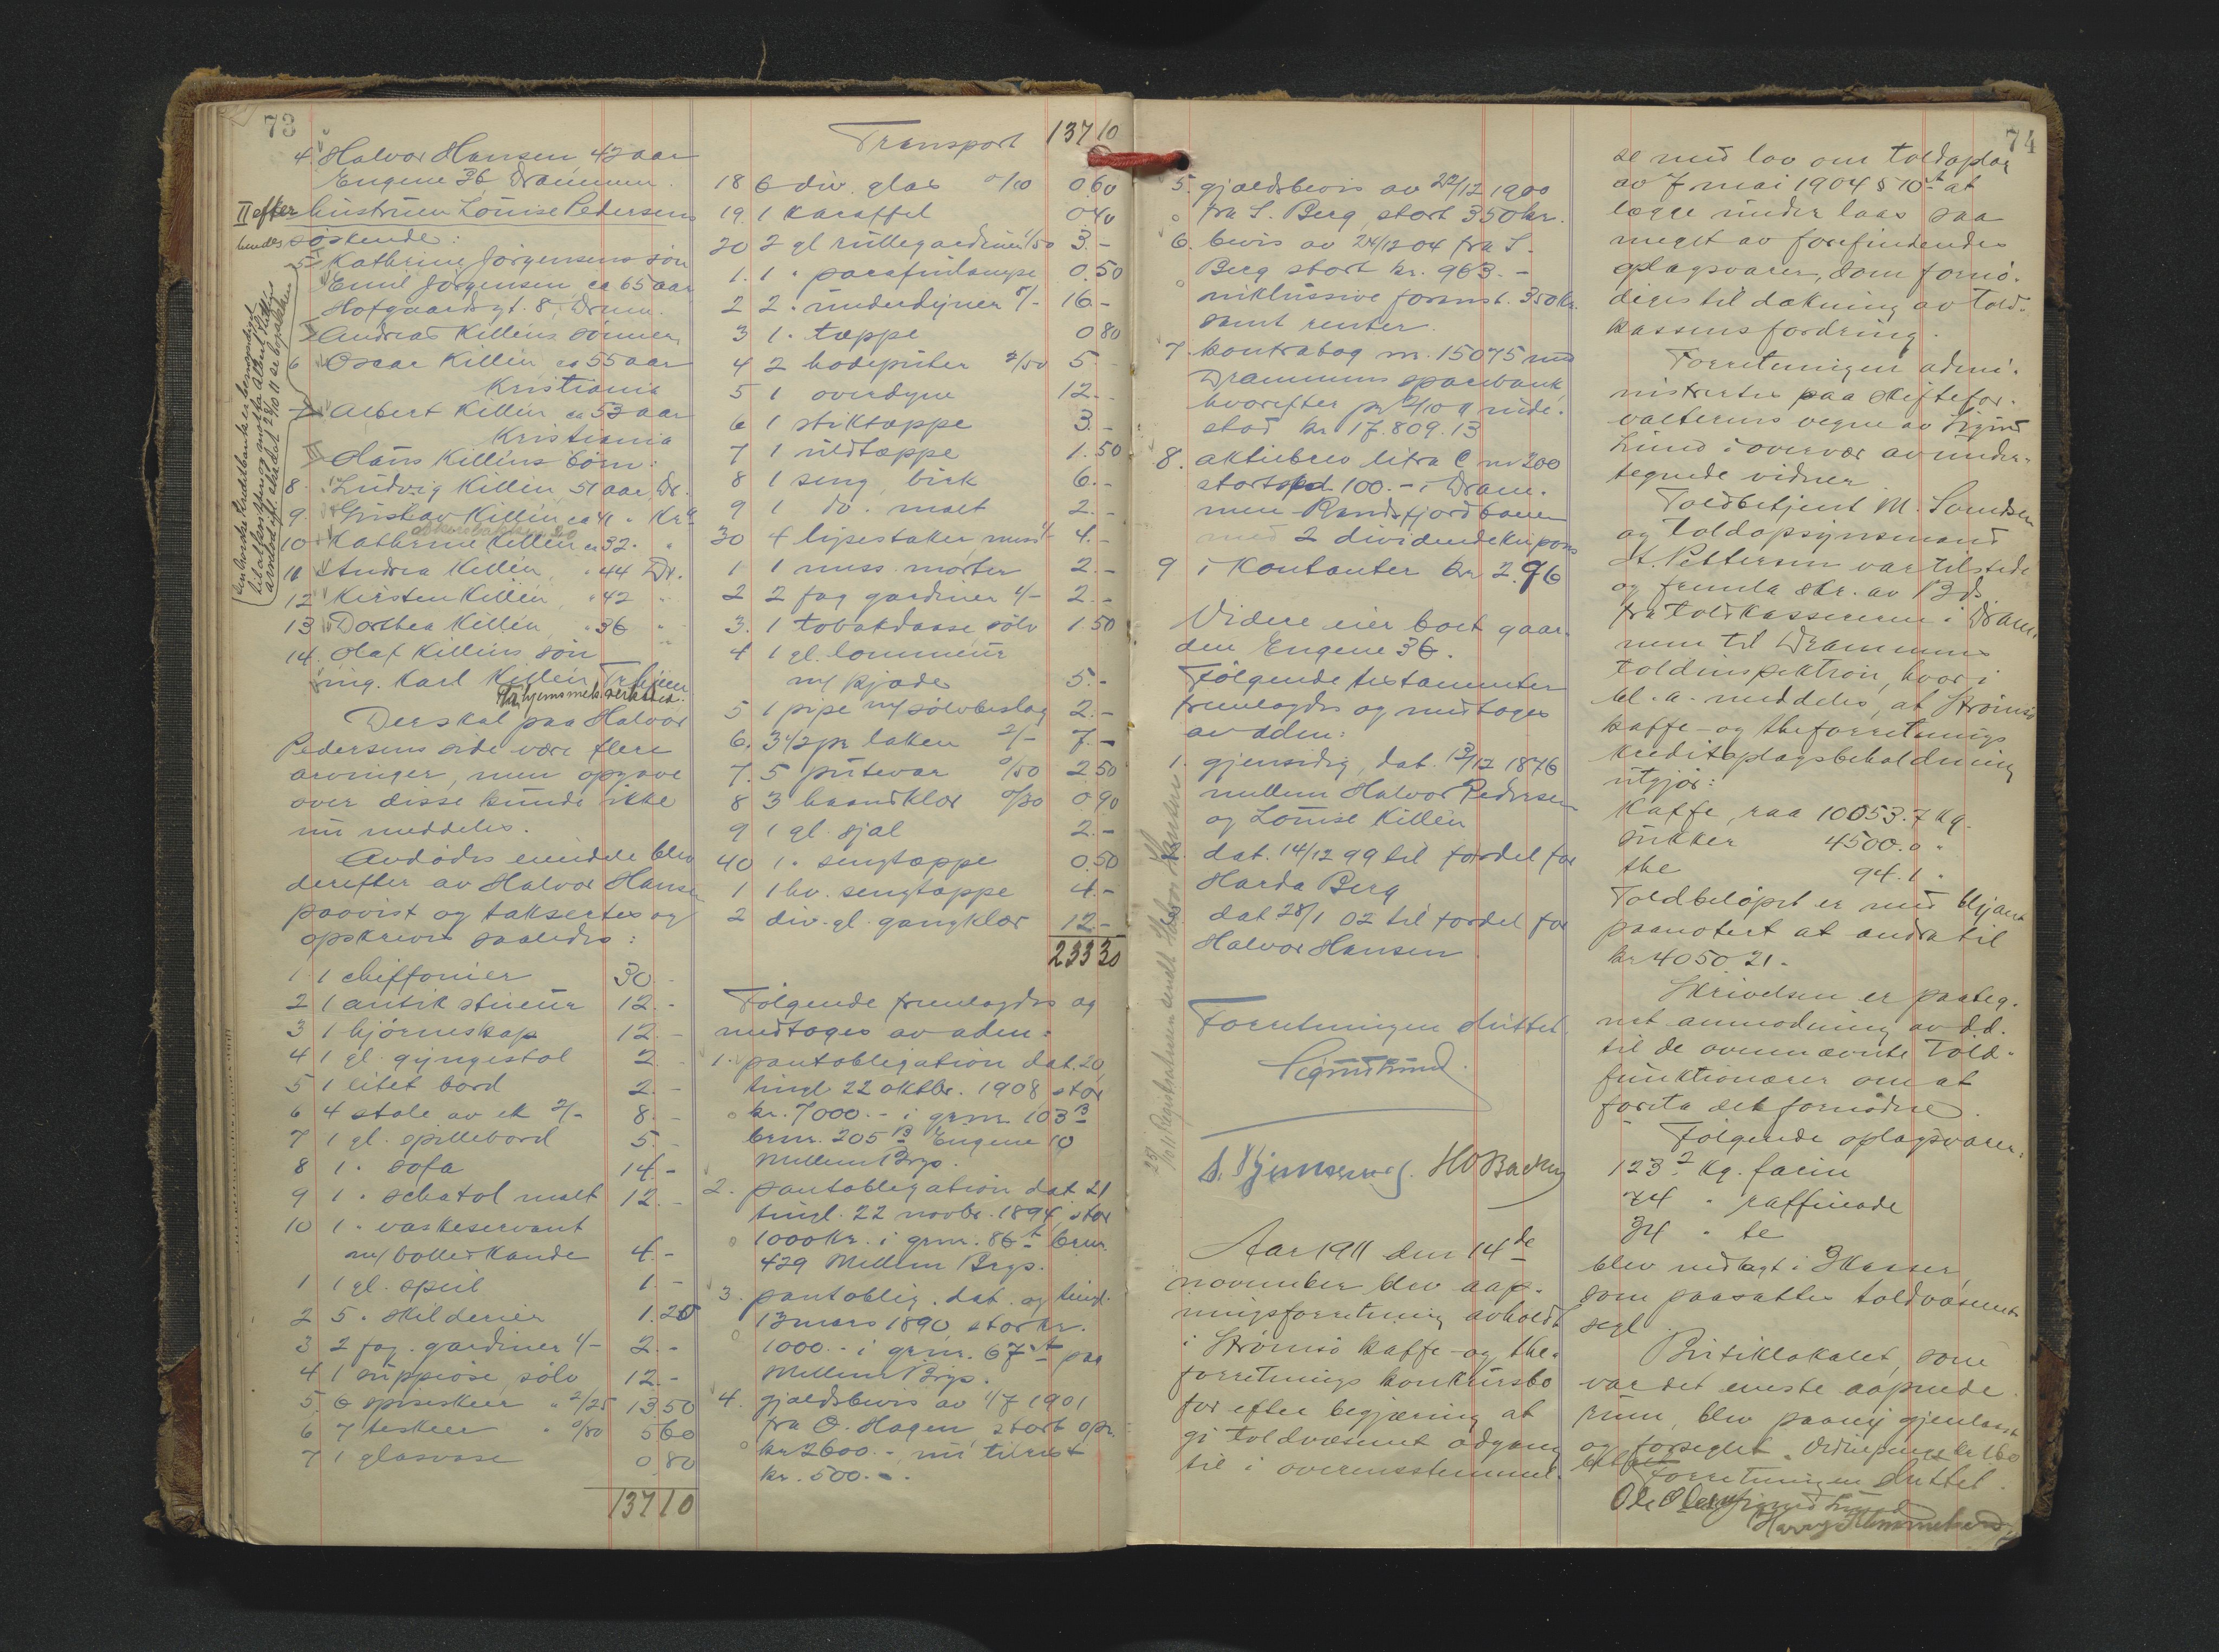 73
4. Halvor Hansen 42 aar
Engene 36, Drammen.
II efter hustruen Louise Pedersens
hendes søskende:
5 Kathrine Jörgensens sön
Emil Jörgensen ca 65 aar
Hofgaardsgt. 8, Dram.
Andreas Killens sönner
6 Oscar Killén ca 55 aar
Kristiania
7 Albert Killén ca 53 aar
Kristiania
Hans Killéns börn:
8. Ludvig Killén, 51 aar, Dr.
9. Gustav Killén ca 41 " Kra
10 Kathrine Killén ca 32 " "
11 Andrea Killén, " 44 Dr.
12 Kirsten Killén, " 42 "
13 Dorthea Killén, " 36 "
14. Olaf Killéns sön
ing. Karl Killén,
Der skal paa Halvor
Pedersens side være flere
arvinger, men opgave
over disse kunde ikke
nu meddeles.
Avdödes eiendele blev
derefter av Halvor Hansen
paavist og taksertes og
opskreves saaledes:
1 1 chiffonier 30.-
2 1 antik stueur 12.-
3 1 hjörneskap 12.-
4 1 gl. gyngestol 2.-
5 1 litet bord 2.-
6 4 stole av ek 2/- 8.-
7 1 gl. spillebord 5.-
8 1 " sofa 14.-
9 1 " schatol malt 12.-
10 1 " vaskeservant
m/ bolle & kande 4.-
1 1 gl. speil 1.-
2 5 " skilderier 1.25
3 2 fag. gardiner 1/- 2.-
4 1 suppeöse, sölv 12.-
5. 6 spiseskeer " 2/25 13 50
6 7 teskeer " 0/80 5 60
7 1 glasvase 0 80
137 10
Transport 137 10
18 6 div. glas 0/10 0 60
19. 1 karaffel 0 40
20 2 gl rullegardiner 1/50 3.-
1. 1 " parafinlampe 0.50
2 2 " underdyner 8/- 16-
3 1 " tæppe 0 80
4 2 hodeputer 2/50 5.-
5 1 overdyne 12.-
6 1 stiktæppe 3.-
7 1 uldtæppe 1.50
8 1 seng, birk 6.-
9 1 do. malt 2.-
30 4 lysestaker, mess 1/- 4.-
1 1 mess. morter 2.-
2 2 fag gardiner 1/- 2.-
3. 1 tobakdaase, sölv 1 50
4 1 gl. lommeur
m/ kjæde 5.-
5 1 pipe m/ sölvbeslag 2.-
6. 3 1/2 pr laken 2/- 7.-
7. 5 putevar 0/50 2 50
8 3 haandklær 0/30 0 90
9 1 gl. sjal 2.-
40 1 " sengtæppe 0.50
1 1 hv. sengtæppe 4.-
2 div. gl. gangklær 12.-
233 30
Fölgende fremlagdes og
medtoges av adm:
1. pantobligation dat. 20
tingl 22 oktbr. 1908 stor
kr. 7000.- i grnr. 103 B
brnr. 205 B Engene 10
Mellem Brgs.
2. pantobligation dat. 21
tingl. 22 novbr. 1894, stor
1000 kr. i grnr. 86 brnr.
429 Mellem Brgs.
3. pantoblig. dat. og tingl.
13 mars 1890, stor kr.
1000.- i grnr. 67 paa
Mellem Brgs.
4. gjældsbevis av 1/7 1901
fra O. Hagen, stort opr.
kr 2600.- nu tilrest
kr. 500.-.
74
5. gjældsbevis av 22/12 1900
fra S. Berg stort 350 kr.
6. bevis av 24/12 04 fra S.
Berg stort kr. 963.-
inklussive foranst. 350 kr.
samt renter.
7 kontrabog nr. 15075 med
Drammens sparebank,
hvorefter pr 2/10 11 inde-
stod kr 17.809.13
8. aktiebrev litra C nr 200
stort spd. 100.- i Dram-
men-Randsfjordbanen
med 2 dividendekuponer
9 i kontanter kr 2.96
Videre eier boet gaar-
den Engene 36.
Fölgende testamenter
fremlagdes og medtoges
av adm:
1. gjensidig, dat. 13/12 1876
mellem Halvor Pedersen
og Louise Killén
dat. 14/12 99 til fordel for
Harda Berg
dat 28/1 02 til fordel for
Halvor Hansen
Forretningen sluttet.
Sigurd Lund.
Aar 1911 den 14de
november blev aap-
ningsforretning avholdt
i Strömsö kaffe- og the-
forretnings konkursbo
for efter begjæring at
gi toldvæsenet adgang
til i overensstemmel-
se med lov om toldoplag
av 7 mai 1904 § 10 at
lægge under laas saa
meget av forefindendes
oplagsvarer, som fornö-
diges til dækning av told-
kassens fordring.
Forretningen admi-
nistrertes paa skiftefor-
valterens vegne av Sigurd
Lund i overvær av under-
tegnede vidner.
Toldbetjent M. Samdsen
og toldopsynsmand
St. Pettersen var tilstede
og fremla skr. av 13 ds
fra toldkassereren i Dram-
men til Drammens
toldinspektion, hvori
bl. a. meddeles, at Strömsö
kaffe- og theforretnings
kreditoplagsbeholdning
utgjör:
Kaffe, raa 10053.7 kg.
sukker 4500.0 "
the 94.1 "
Toldbelöpet er med blyant
paanotert at andra til
kr 4050 21.
Skrivelsen er paateg-
net anmodning av d.d.
til de ovennævnte told-
funktionærer om at
foreta det fornödne.
Fölgende oplagsvarer:
123.2 kg. farin
74 " raffinade
34 " te
blev nedlagt i 3 kasser,
som paasattes toldvæsenets
segl.
Butiklokalet, som
var det eneste aapnede
rum, blev paany gjenlaast
og forseglet. Vidnepenge kr 1.60
Forretningen sluttet.
Ole Olsen Sigurd Lund